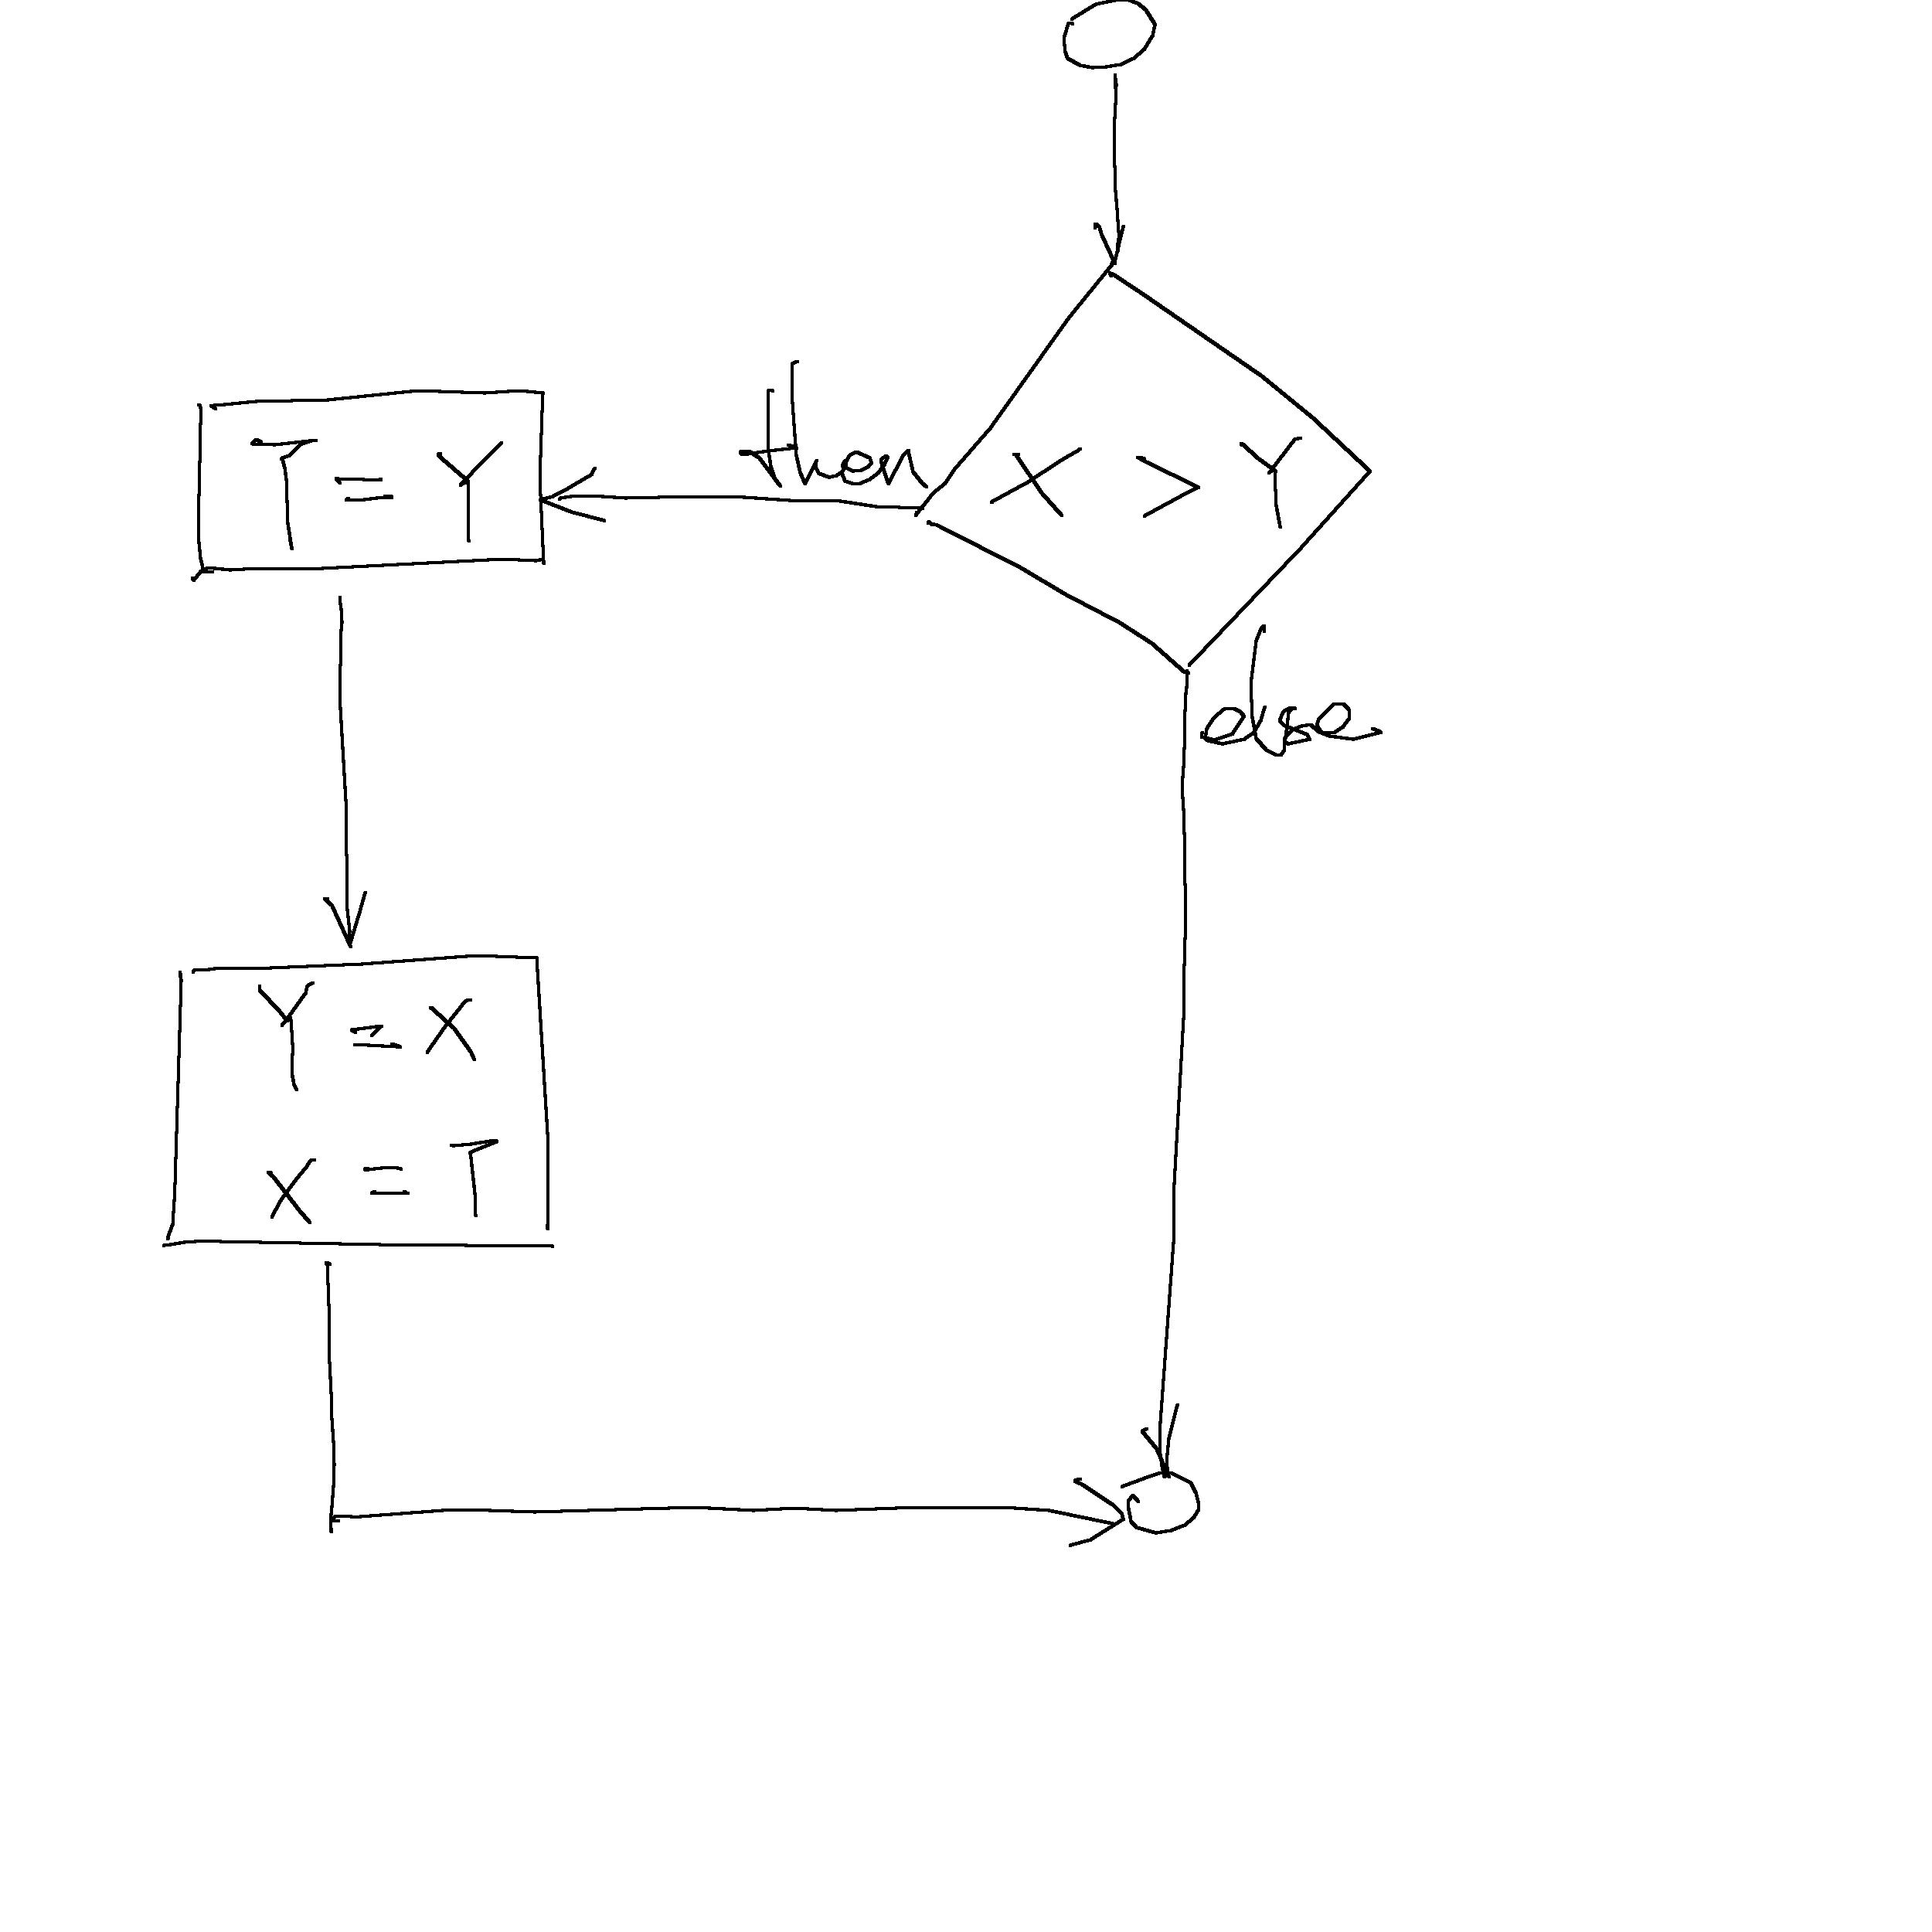 X > Y
then
T = Y
else
Y = X
X = T